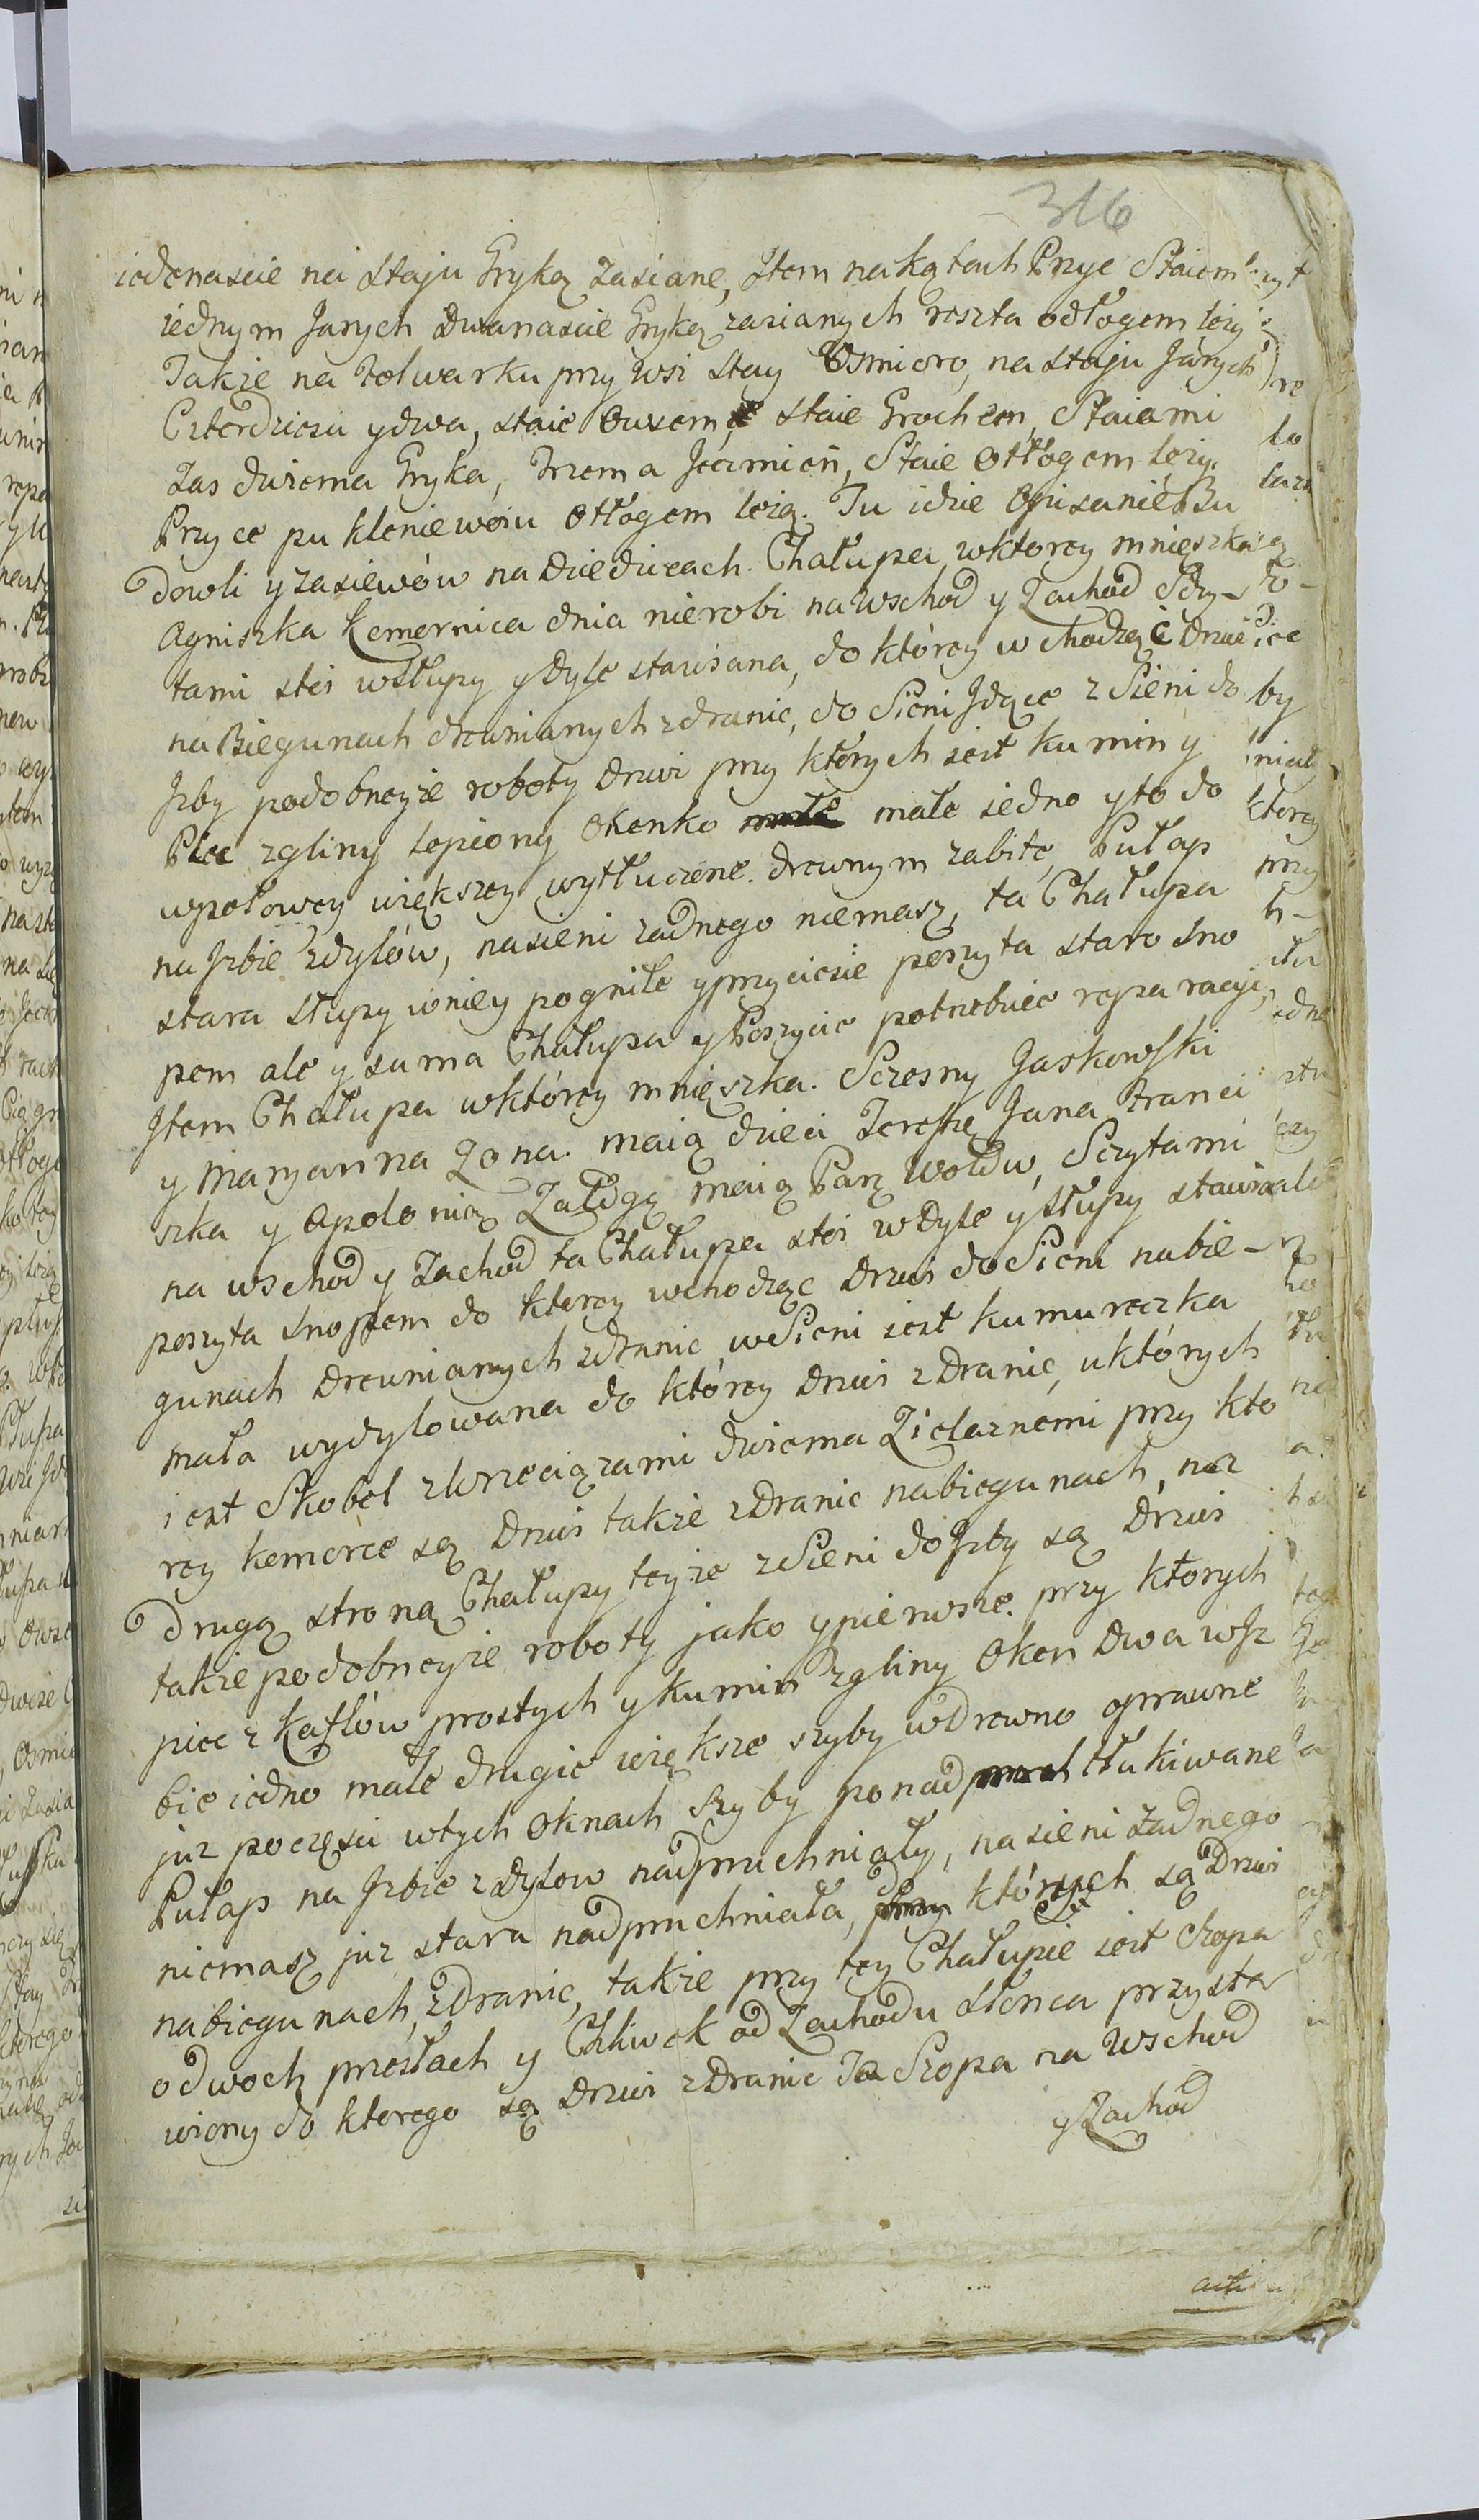 316
iedenascie na staju Gryką zasiane, Item na kątach Przyc Staiem
iednym Jarych dwanascie Gryką zasianych reszta odłogem leży
Także na Folwarku przy Wsi Stay Osmioro, na staju Jarych
Czterdziesci y dwa, staie Owsem, staie Grochem, Staiami
Zas dwiema Gryka, Trzema Jęczmień, Staie Otłogem leży.
Przyce pu kleniewciu Otłogem leżą. Tu idzie Opisanie Bu
dowli y zasiewów na Dziedzicach. Chałupa w ktorey mnieszka
Agniszka Komornica dnia nie robi na Wschod y Zachod Sczy-
tami stoi w słupy y Dyle stawiana, do ktorey wchodząc Drzwi
na Biegunach drewnianych z dranic, do Sieni Idące z Sieni do
Izby podobneyże roboty Drzwi przy ktorych jest kumin y
Piec z gliny lepiony Okenko małe iedno y to do
wpołowey większey wytłuczone. drewnym zabite, Pułap
na Izbie z dylów, na sieni zadnego niemasz, ta Chałupa
stara słupy w niey pogniłe y przyciesie poszyta staro sno
pem ale y sama Chałupa y Poszycie potrzebuie reparacyi,
Item Chałupa w którey mnięszka. Sczesny Jaskowski
y Maryanna Zona. maią dzieci Tereskę Jana Franci
szka y Apolonią Załogę maią Parę Wołów, Sczytami
na wschod y Zachod ta Chałupa stoi w Dyle y słupy stawia
poszyta snopem do ktorey wchodząc Drzwi do Sieni na bie-
gunach Drewnianych z dranic, w Sieni jest kumureczka
mała wydylowana do którey Drzwi z Dranic, u których
iest Skobel z Wrzeciązami dwiema Zielaznemi przy kto
rey komorce są Drzwi także z Dranic na biegunach, na
Drugą stroną Chałupy teyże z Sieni do Izby są Drzwi
także podobneyże roboty jako y pierwsze. przy ktorych
piec z Kaflów prostych y kumin z gliny Oken Dwa w Iz
bie iedno małe drugie większe szyby w Drewno oprawne
już poczęsci w tych Oknach szyby ponad tłukiwane
Pułap na Izbie z Dylow nadpruchniały, na sieni żadnego
niemasz już stara nadpruchniała, których są Drzwi
na biegunach, z Dranic, także przy tey Chałupie iest szopa
o dwoch przesłach y Chliwek od Zachodu słonca przysta
wiony do ktorego są Drzwi z Dranic Ta Szopa na Wschod
y Zachod